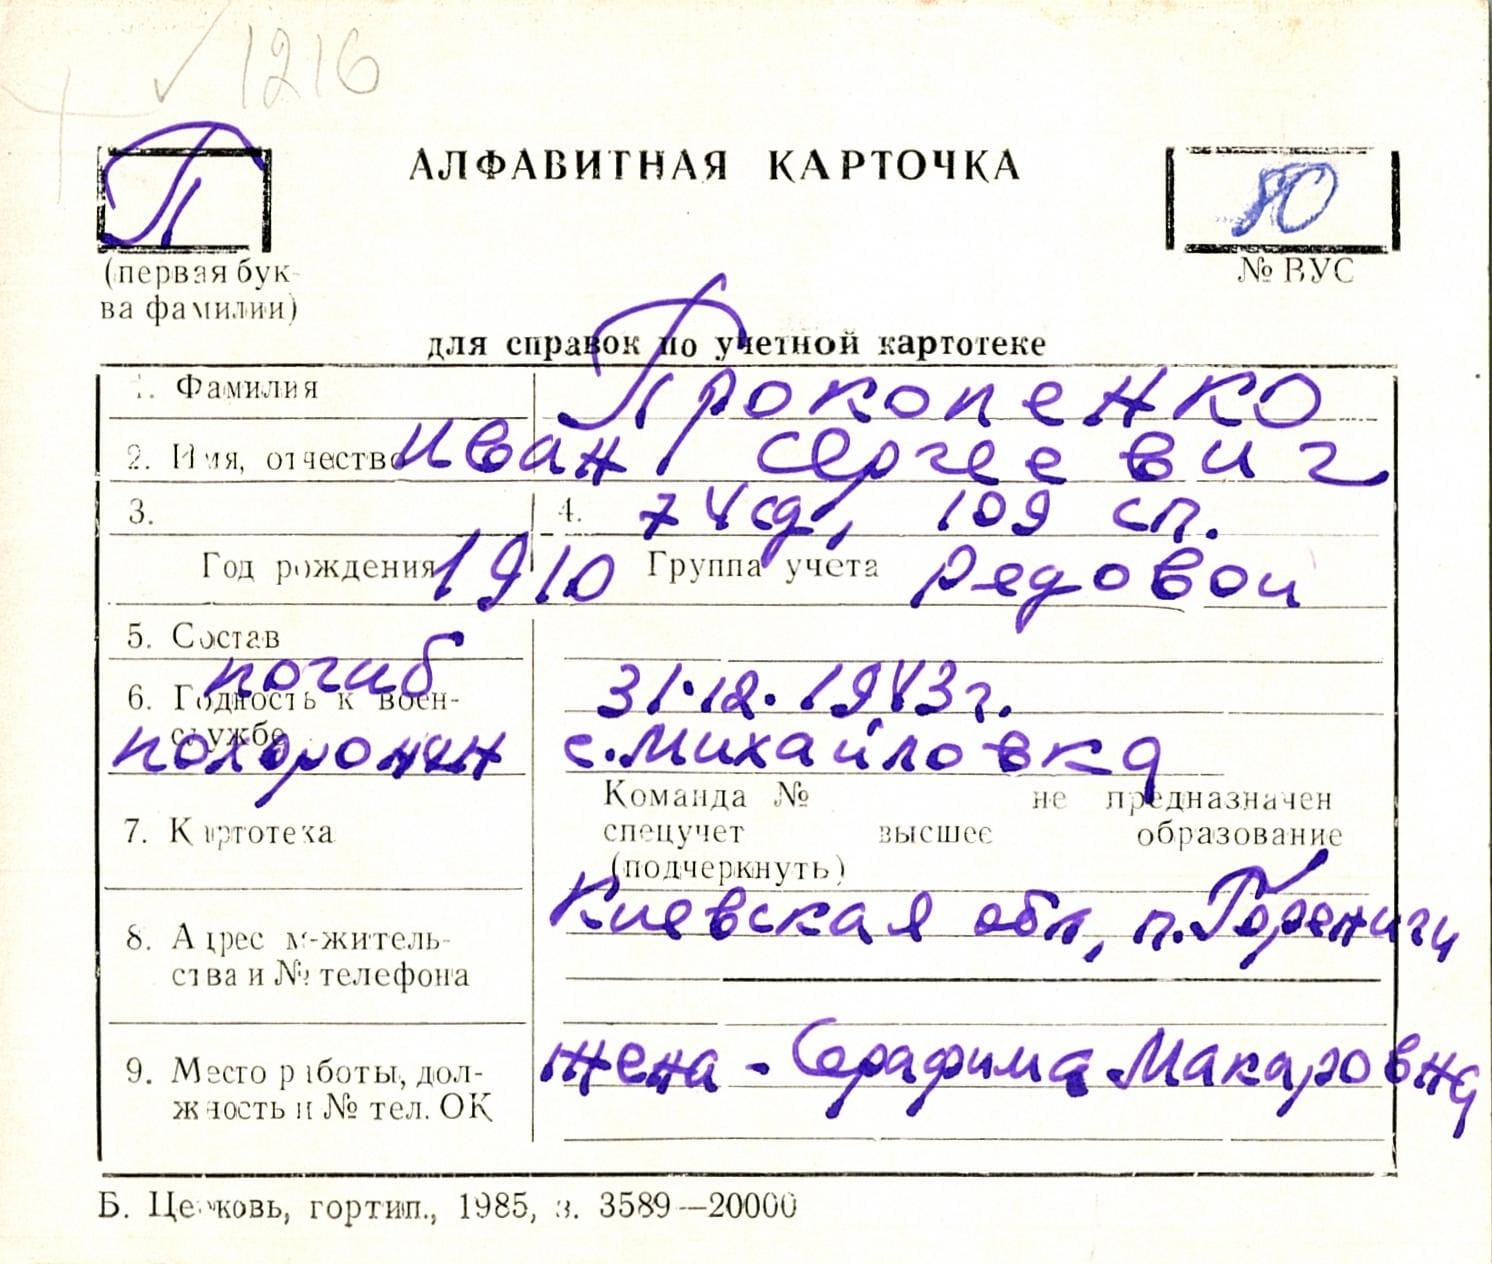 1216
П
АЛФАВИТНАЯ КАРТОЧКА
80
(первая бук-
ва фамилии)
№ ВУС
для справок по учетной картотеке
1. Фамилия Прокопенко
2. Имя, отчество Иван Сергеевич
3. 4. 74 сд, 109 сп.
Год рождения 1910 Группа учета рядовой
5. Состав
погиб 31.12.1943 г.
6. Годность к воен-
службе
похоронен с. Михайловка
Команда № не предназначен
7. Картотека спецучет высшее образование
(подчеркнуть)
Киевская обл, п. Гореничи
8. Адрес м-житель-
ства и № телефона
жена - Серафима Макаровна
9. Место работы, дол-
жность и № тел. ОК
Б. Церковь, гортип., 1985, з. 3589—20000